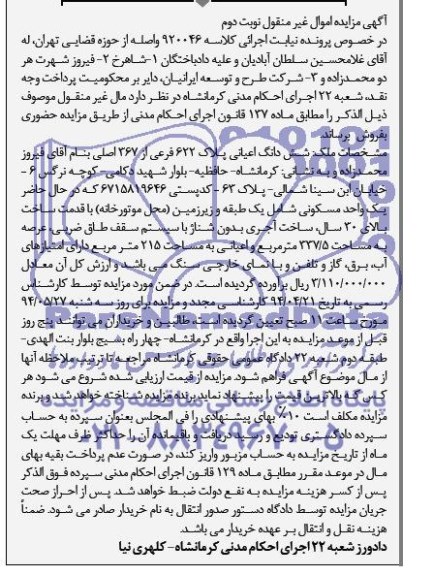 آگهی مزایده اموال غیر منقول نوبت دوم
در خصوص پرونده نیابت اجرائی کلاسه ۹۲۰۰۴۶ واصله از حوزه قضایی تهران، له
آقای غلامحسین سلطان آبادیان و علیه دادباختگان ۱-شاهرخ ۲- فیروز شهرت هر
دو محمدزاده و ۳- شرکت طرح و توسعه ایرانیان، دایر بر محکومیت پرداخت وجه
نقد، شعبه ۲۲ اجرای احکام مدنی کرمانشاه در نظر دارد مال غیر منقول موصوف
ذیل الذکر را مطابق ماده ۱۳۷ قانون اجرای احکام مدنی از طریق مزایده حضوری
بفروش برساند.
مشخصات ملک: شش دانگ اعیانی پلاک ۶۲۲ فرعی از ۳۶۷ اصلی بنام آقای فیروز
محمدزاده و به نشانی: کرمانشاه- حافظیه- بلوار شهید دکامی- کوچه نرگس ۶ -
خیابان ابن سینا شمالی- پلاک ۶۳ - کدپستی ۶۷۱۵۸۱۹۶۴۶ که در حال حاضر
یک واحد مسکونی شامل یک طبقه و زیرزمین (محل موتورخانه) با قدمت ساخت
بالای ۳۰ سال، ساخت آجری بدون شناژ با سیستم سقف طاق ضربی، عرصه
به مساحت ۳۳۷/۵ مترمربع و اعیانی به مساحت ۲۱۵ متر مربع دارای امتیازهای
آب، برق، گاز و تلفن و با نمای خارجی سنگ می باشد و ارزش کل آن معادل
۳/۱۱۰/۰۰۰/۰۰۰ ریال برآورده گردیده است. در ضمن مورد مزایده توسط کارشناس
رسمی به تاریخ ۹۴/۰۴/۲۱ کارشناسی مجدد و مزایده برای روز سه شنبه ۹۴/۰۵/۲۷
مورخ ساعت ۱۱ صبح تعیین گردیده است، طالبین و خریداران می توانند پنج روز
قبل از موعد مزایده به این اجرا واقع در کرمانشاه- چهار راه بسیج بلوار بنت الهدی-
طبقه دوم شعبه ۲۲ دادگاه عمومی حقوقی کرمانشاه مراجعه تا ترتیب ملاحظه آنها
از مال موضوع آگهی فراهم شود. مزایده از قیمت ارزیابی شده شروع می شود هر
کس که بالاترین قیمت را پیشنهاد نماید برنده مزایده شناخته خواهد شد و برنده
مزایده مکلف است ۱۰٪ بهای پیشنهادی را فی المجلس بعنوان سپرده به حساب
سپرده دادگستری تودیع و رسید دریافت و باقیمانده آن را حداکثر ظرف مهلت یک
ماه از تاریخ مزایده به حساب مزبور واریز کند، در صورت عدم پرداخت بقیه بهای
مال در موعد مقرر مطابق ماده ۱۲۹ قانون اجرای احکام مدنی سپرده فوق الذکر
پس از کسر هزینه مزایده به نفع دولت ضبط خواهد شد. پس از احراز صحت
جریان مزایده توسط دادگاه دستور صدور انتقال به نام خریدار صادر می شود. ضمناً
هزینه نقل و انتقال بر عهده خریدار می باشد.
دادورز شعبه ۲۲ اجرای احکام مدنی کرمانشاه- کلهری نیا